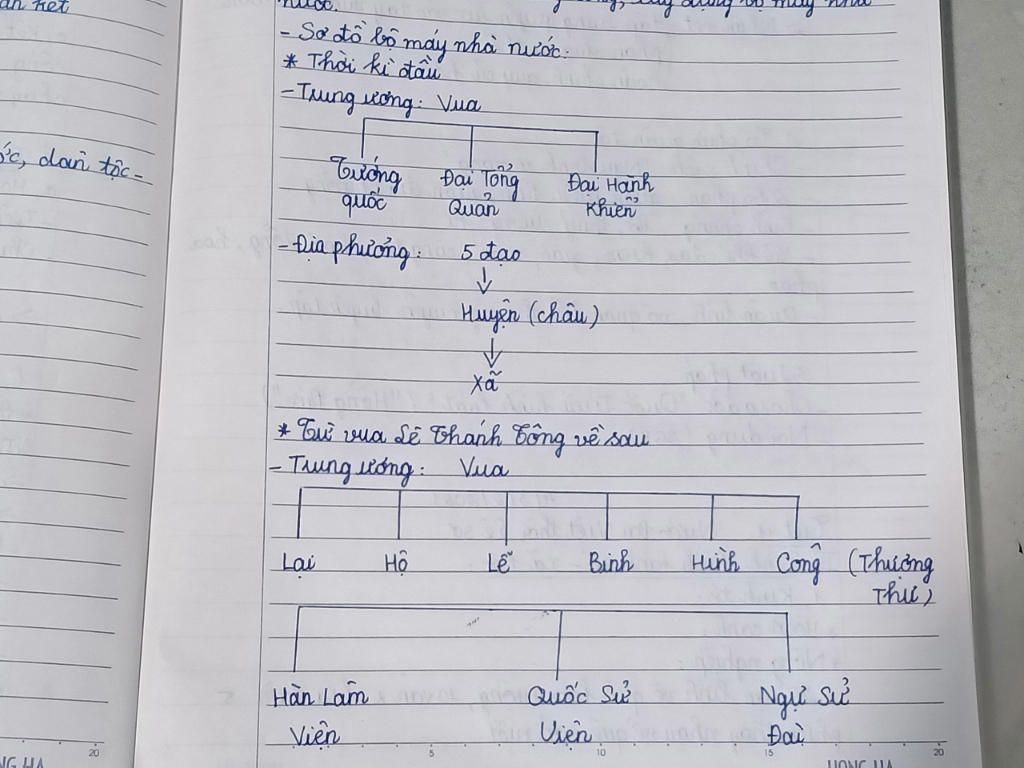 nước.
- Sơ đồ bộ máy nhà nước.
* Thời kì đầu
- Trung ương: Vua
Tướng quốc Đại Tổng Quản Đại Hành Khiển
- Địa phương: 5 đạo
Huyện (châu)
Xã
* Từ vua Lê Thánh Tông về sau
- Trung ương: Vua
Lại Hộ Lễ Binh Hình Công (Thượng Thư)
Hàn Lâm Quốc Sử Ngự Sử
Viện Viện Đài
20 5 10 15 20
HONG HA